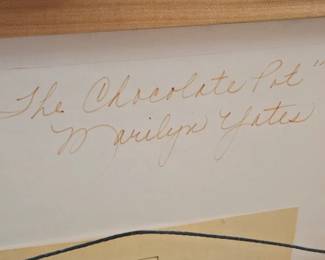 The Chocolate Pot"
Marilyn Yates